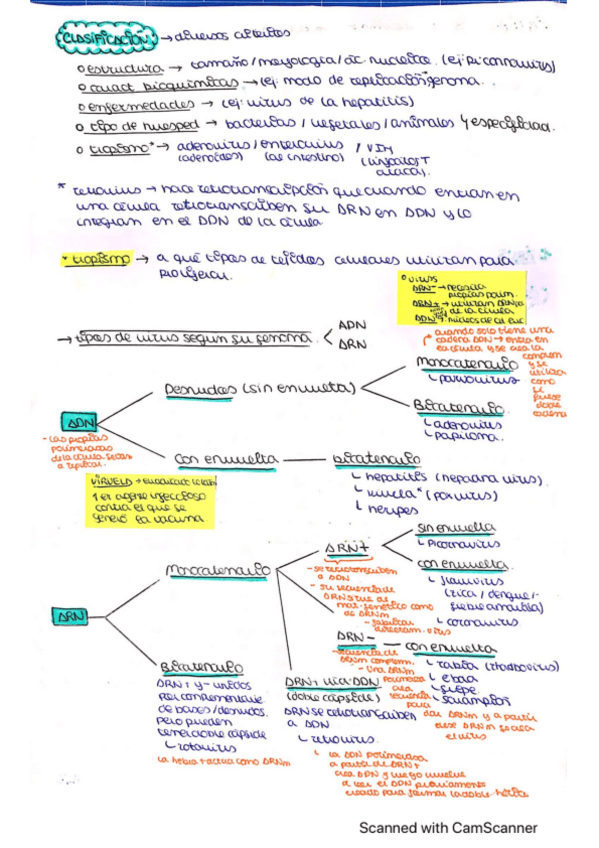 CLASIFICACIÓN → diversos criterios
o estructura → tamaño / morfología / ác nucleico (ej: picornavirus)
o caract bioquímicas → (ej: modo de replicación genoma.
o enfermedades → (ej: virus de la hepatitis)
o tipo de huésped → bacterias / vegetales / animales y especificidad.
o tropismo* → adenovirus / enterovirus / VIH
(adenoides) (de intestino) (linfocitos T
ataca).
* retrovirus → hace retrotranscripción que cuando entran en
una célula retrotranscriben su ARN en ADN y lo
integran en el ADN de la célula
* tropismo → a qué tipos de tejidos celulares utilizan para
proliferar.
o virus
ARN- → necesita
propias polim.
ARN+ → utilizan
de la célula
ADN
→ tipos de virus según su genoma. < ADN
ARN
cuando solo tiene una
cadena ADN → entra en
la célula y se crea la
complem
y se
utiliza
como
si
fuese
doble
cadena
ADN
- Las propias
polimerasas
de la célula
a replicar.
Desnudos (sin envuelta)
Monocatenario
↳ parvovirus
Bicatenario.
↳ adenovirus
↳ papiloma.
Con envuelta — bicatenario
↳ hepatitis (hepadna virus).
↳ viruela* (poxvirus)
↳ herpes
VIRUELA → erradicado
1er agente infeccioso
contra el que se
generó la vacuna
ARN
Monocatenario
ARN+
- se retrotranscriben
a ADN
- su secuencia de
ARN sirve de
mat. genético como
de ARNm
sin envuelta
↳ Picornavirus
con envuelta.
↳ flavivirus
(zica / dengue /
fiebre amarilla)
↳ coronavirus
ARN- — con envuelta
- secuencia de
ARNm complem.
- Una ARNm
polimerasa
crea
secuencia
para
dar ARNm y a partir
ese ARNm se crea
el virus
↳ rabia (rhabdovirus)
↳ ebola
↳ gripe
↳ sarampión
ARN+ vía ADN
(doble cápside)
ARN se retrotranscriben
a ADN
↳ retrovirus.
↳ la ADN polimerasa
a partir de ARN+
crea ADN y luego vuelve
a leer el ADN previamente
creado para formar la doble hélice
Bicatenario
ARN+ y - unidos
por complementariedad
de bases / desnudos.
pero pueden
tener doble cápside
↳ rotavirus
la hebra + actúa como ARNm
Scanned with CamScanner